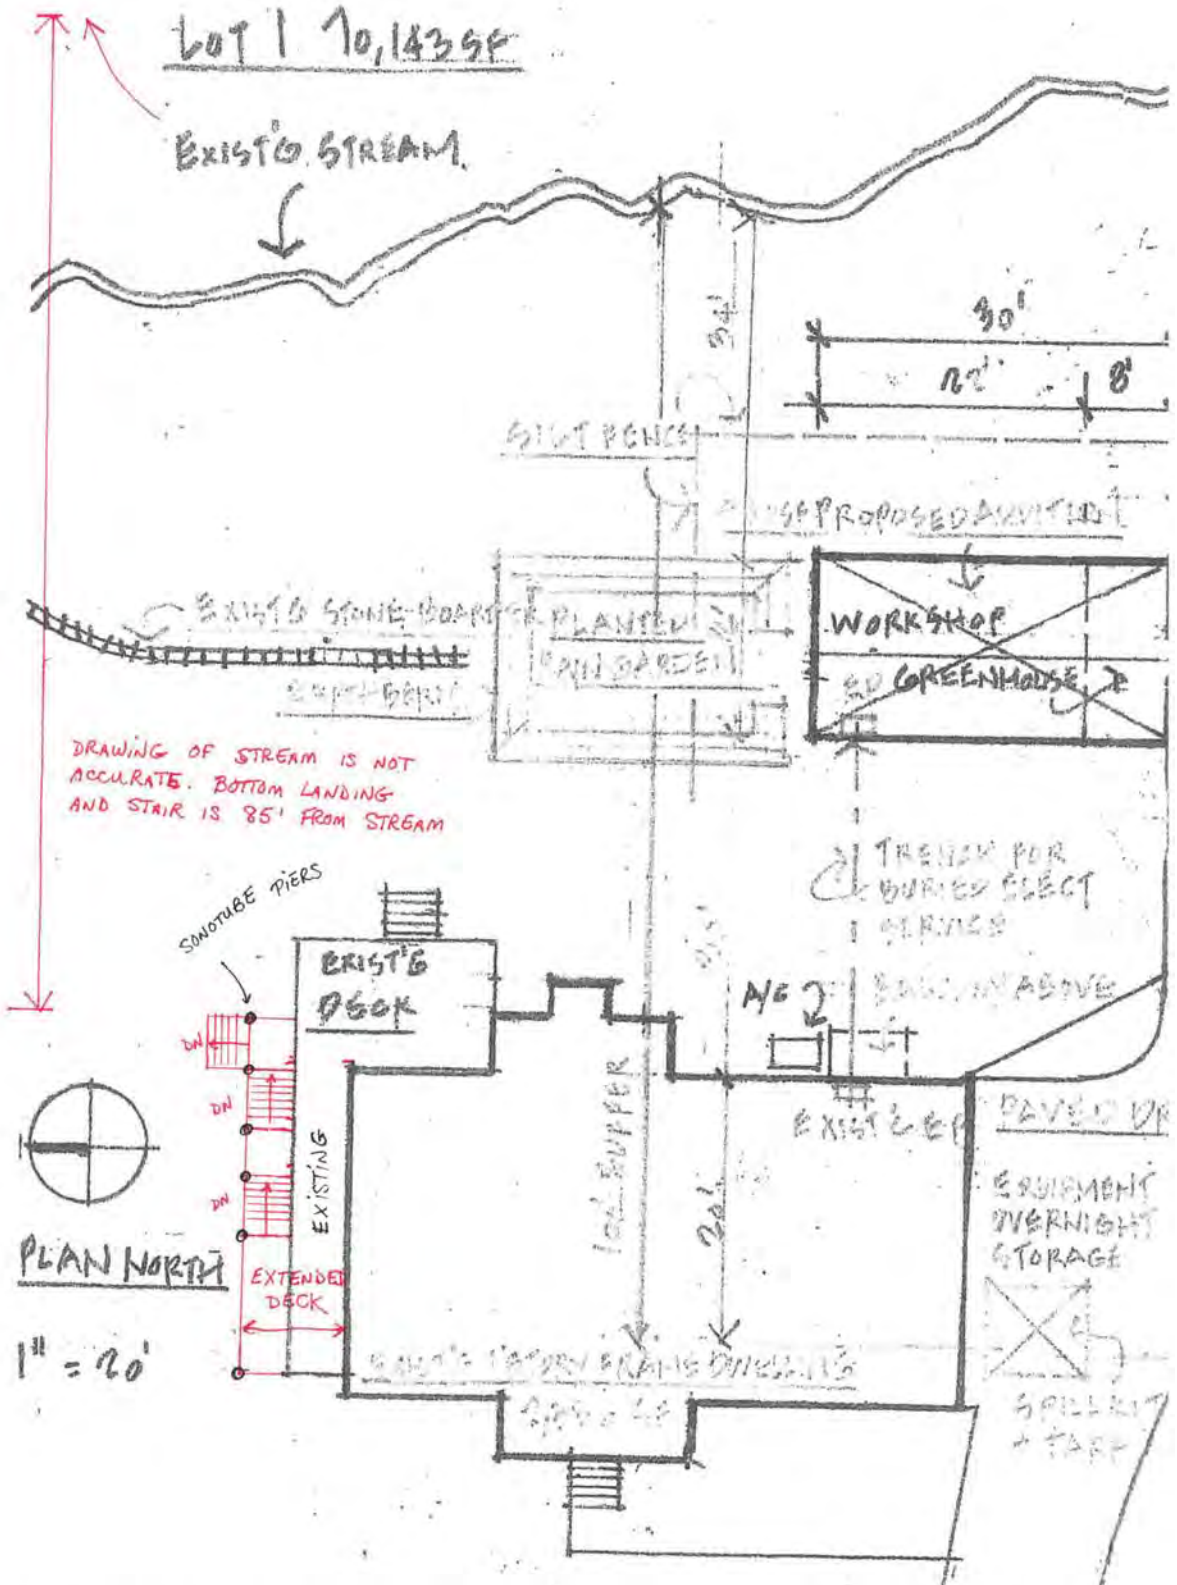 LOT 1 70,143 SF
EXIST'G STREAM.
34'
30'
22'
8'
SILT FENCE
PROPOSED
EXIST'G STONE BOARDER
PLANTED
RAIN GARDEN
WORKSHOP
EP GREENHOUSE
DRAWING OF STREAM IS NOT
ACCURATE. BOTTOM LANDING
AND STAIR IS 85' FROM STREAM
SONOTUBE PIERS
TRENCH FOR
BURIED ELECT
SERVICE
EXIST'G
DECK
A/C
ABOVE
DN
DN
DN
EXISTING
100' BUFFER
EXIST'G EP
PAVED DR
EQUIPMENT
OVERNIGHT
STORAGE
PLAN NORTH
EXTENDED
DECK
1" = 20'
EXIST'G STORY FRAME DWELLING
SPILL KIT
+ TARP